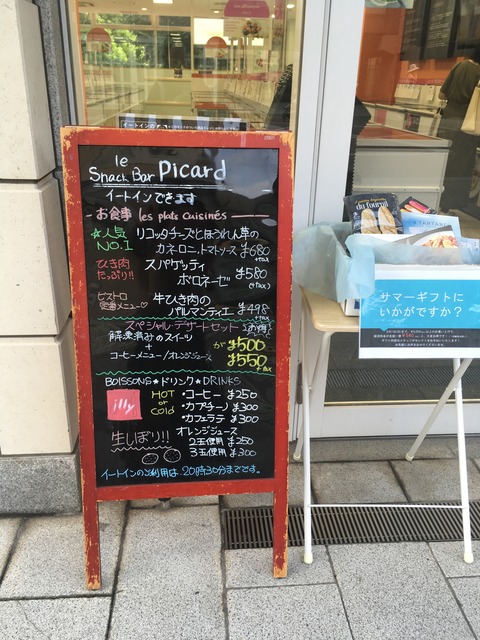 le
Snack Bar Picard
イートインできます
お食事 les plats cuisinés
☆人気 NO.1
リコッタチーズとほうれん草の
カネロニ、トマトソース ¥680 +tax
ひき肉たっぷり!!
スパゲッティ
ボロネーゼ ¥580 (+tax)
ビストロ定番メニュー♡
牛ひき肉の
パルマンティエ ¥498 +tax
スペシャルデザートセット
解凍済みのスイーツ
+
コーヒーメニュー/オレンジジュース
が ¥500
¥550 +tax
BOISSONS★ドリンク★DRINKS
illy
HOT or COLD
・コーヒー ¥250
・カプチーノ ¥300
・カフェラテ ¥300
生しぼり!!
オレンジジュース
2玉使用 ¥250
3玉使用 ¥300
イートインのご利用は、20時30分までです。
du fournil
TARTARE
サマーギフトに
いかがですか?